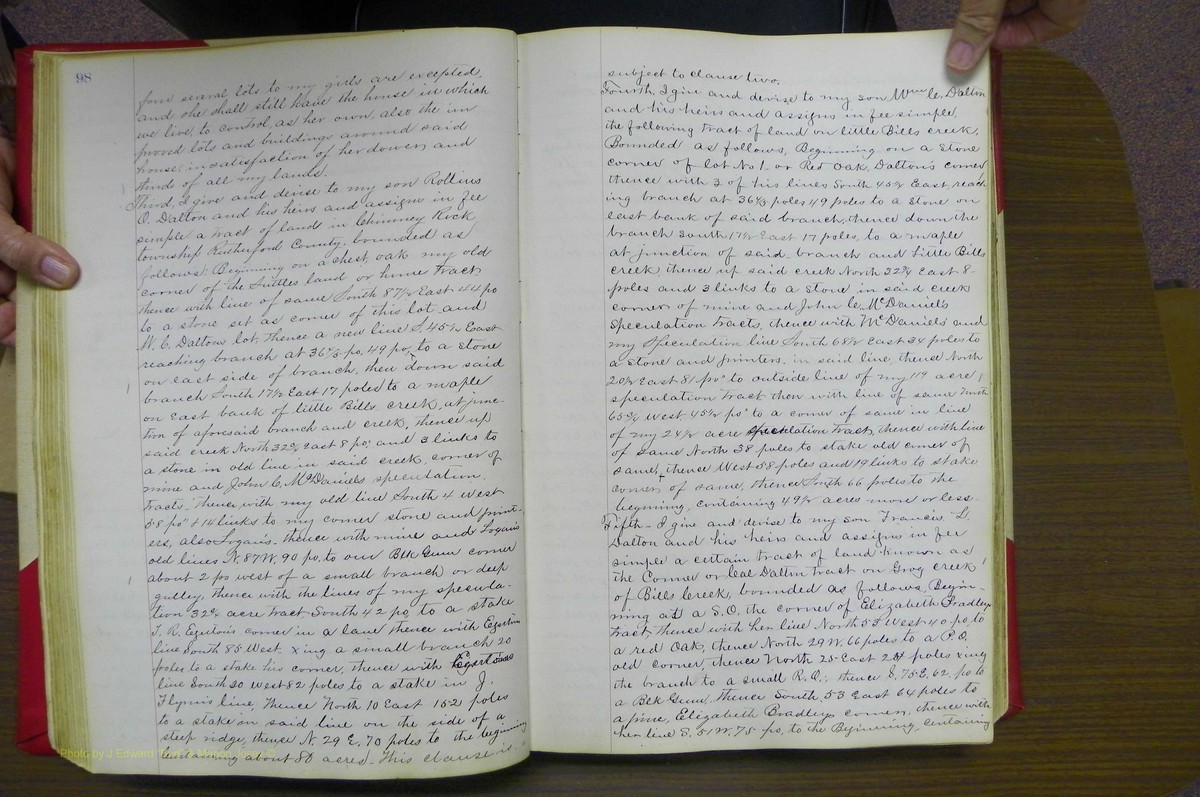 98
four several lots to my girls are excepted,
and she shall still have the house in which
we live, to control, as her own, also the im
proved lots and buildings around said
house, in satisfaction of her dowers and
thirds of all my lands.
Third, I give and devise to my son Rollins
O. Dalton and his heirs and assigns in fee
simple a tract of land in Chimney Rock
township Rutherford County, bounded as
follows: Beginning on a chest, oak my old
corner of the Suttles land or home tract
thence with line of same South 87½ East 44 po
to a stone set as corner of this lot and
W. C. Daltons lot, thence a new line S. 45½ East
reaching branch at 36⅔ po, 49 po, to a stone
on east side of branch, then down said
branch South 17½ East 17 poles to a maple
on East bank of little Bills creek, at junc-
tion of aforesaid branch and creek, thence up
said creek North 32¾ East 8 po, and 3 links to
a stone in old line in said creek, corner of
mine and John C. McDaniels speculation
tracts, thence with my old line South 4 West
58 po + 14 links to my corner stone and point-
ers, also Logans, thence with mine and Logans
old lines N. 87 W. 90 po, to our Blk Gum corner
about 2 po west of a small branch or deep
gulley, thence with the lines of my specula-
tion 32¾ acre tract South 42 po to a stake
T. R. Egertons corner in a lane thence with Egerton
line South 85 West, xing a small branch 20
poles to a stake his corner, thence with Egertons
line South 20 West 82 poles to a stake in J.
Flynns line, thence North 10 East 152 poles
to a stake on said line on the side of a
steep ridge, thence N. 29 E. 70 poles to the beginning
containing about 80 acres. This clause is
subject to clause two.
Fourth, I give and devise to my son Wm C. Dalton
and his heirs and assigns in fee simple,
the following tract of land on little Bills creek,
Bounded as follows, Beginning on a stone
corner of lot No 1. or Red Oak, Dalton's corner
thence with 3 of his lines South 45½ East, reach
ing branch at 36⅔ poles 49 poles to a stone on
east bank of said branch, thence down the
branch South 17½ East 17 poles, to a maple
at junction of said branch and Little Bills
creek, thence up said creek North 32¾ East 8-
poles and 3 links to a stone in said creek
corner of mine and John C. McDaniels
speculation tracts, thence with McDaniels and
my speculation line South 68½ East 34 poles to
a stone and pointers, in said line, thence North
20½ East 81 pos to outside line of my 119 acre
speculation tract then with line of same North
65¾ West 45½ pos to a corner of same in line
of my 24½ acre speculation tract, thence with line
of same North 38 poles to stake old corner of
same, thence West 58 poles and 19 links to stake
corner of same, thence South 66 poles to the
beginning, containing 49½ acres more or less.
Fifth - I give and devise to my son Francis L.
Dalton and his heirs and assigns in fee
simple a certain tract of land known as
the Conner or Cal Dalton tract on Grog creek
of Bills Creek, bounded as follows, Begin-
ning at a S.O. the corner of Elizabeth Bradleys
tract, thence with her line North 53 West 40 po, to
a red Oak, thence North 29 W. 66 poles to a P.O.
old corner, thence North 25 East 24 poles xing
the branch to a small R.O., thence S. 75 E. 62, po to
a Blk Gum, thence South 53 East 64 poles to
a pine, Elizabeth Bradleys corner, thence with
her line S. 51 W. 75 po, to the Beginning, Containing